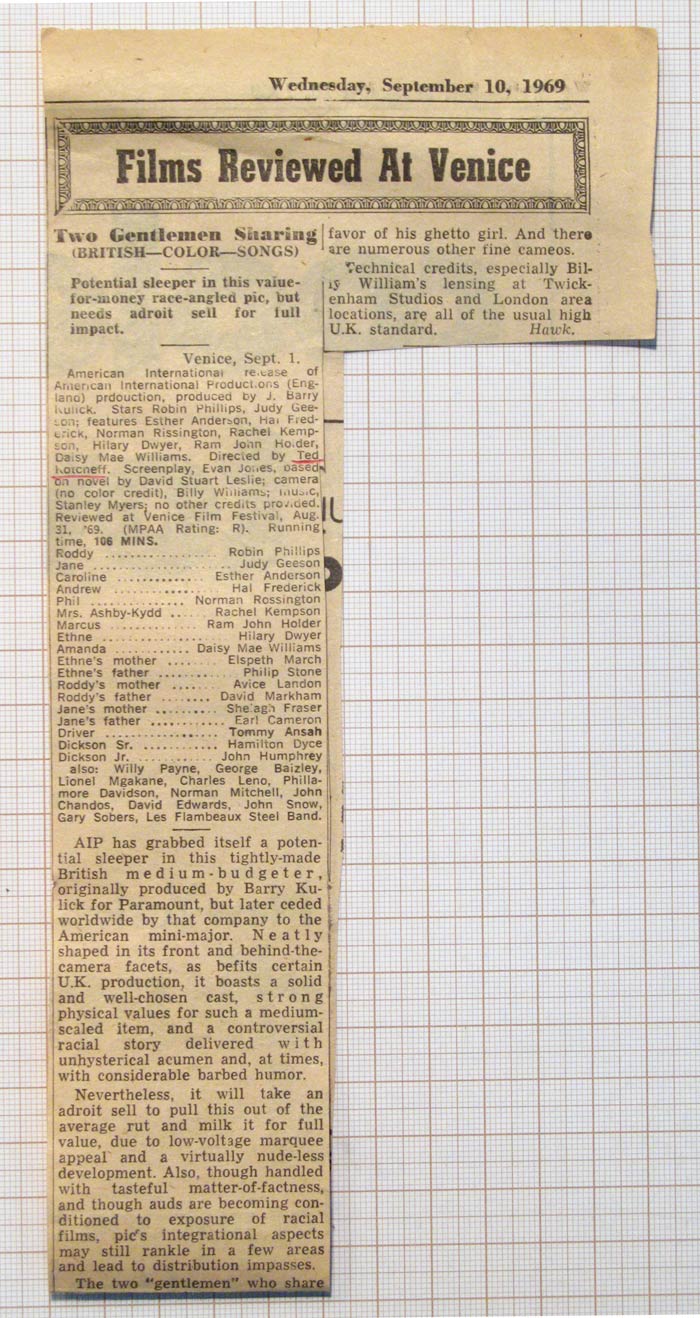 Wednesday, September 10, 1969
Films Reviewed At Venice
Two Gentlemen Sharing
(BRITISH—COLOR—SONGS)
Potential sleeper in this value-
for-money race-angled pic, but
needs adroit sell for full
impact.
Venice, Sept. 1.
American International release of
American International Productions (Eng-
land) prdouction, produced by J. Barry
Kulick. Stars Robin Phillips, Judy Gee-
son; features Esther Anderson, Hal Fred-
erick, Norman Rissington, Rachel Kemp-
son, Hilary Dwyer, Ram John Holder,
Daisy Mae Williams. Directed by Ted
Kotcheff. Screenplay, Evan Jones, based
on novel by David Stuart Leslie; camera
(no color credit), Billy Williams; music,
Stanley Myers; no other credits provided.
Reviewed at Venice Film Festival, Aug.
31, '69. (MPAA Rating: R). Running
time, 106 MINS.
Roddy ................ Robin Phillips
Jane .................... Judy Geeson
Caroline ............ Esther Anderson
Andrew ............. Hal Frederick
Phil .............. Norman Rossington
Mrs. Ashby-Kydd ..... Rachel Kempson
Marcus ............... Ram John Holder
Ethne .................. Hilary Dwyer
Amanda ........... Daisy Mae Williams
Ethne's mother ........ Elspeth March
Ethne's father ........... Philip Stone
Roddy's mother ....... Avice Landon
Roddy's father ........ David Markham
Jane's mother .......... Shelagh Fraser
Jane's father ........... Earl Cameron
Driver .................. Tommy Ansah
Dickson Sr. ............ Hamilton Dyce
Dickson Jr. ............. John Humphrey
also: Willy Payne, George Baizley,
Lionel Mgakane, Charles Leno, Philla-
more Davidson, Norman Mitchell, John
Chandos, David Edwards, John Snow,
Gary Sobers, Les Flambeaux Steel Band.
AIP has grabbed itself a poten-
tial sleeper in this tightly-made
British medium-budgeter,
originally produced by Barry Ku-
lick for Paramount, but later ceded
worldwide by that company to the
American mini-major. Neatly
shaped in its front and behind-the-
camera facets, as befits certain
U.K. production, it boasts a solid
and well-chosen cast, strong
physical values for such a medium-
scaled item, and a controversial
racial story delivered with
unhysterical acumen and, at times,
with considerable barbed humor.
Nevertheless, it will take an
adroit sell to pull this out of the
average rut and milk it for full
value, due to low-voltage marquee
appeal and a virtually nude-less
development. Also, though handled
with tasteful matter-of-factness,
and though auds are becoming con-
ditioned to exposure of racial
films, pic's integrational aspects
may still rankle in a few areas
and lead to distribution impasses.
The two "gentlemen" who share
favor of his ghetto girl. And there
are numerous other fine cameos.
Technical credits, especially Bil-
ly William's lensing at Twick-
enham Studios and London area
locations, are all of the usual high
U.K. standard. Hawk.